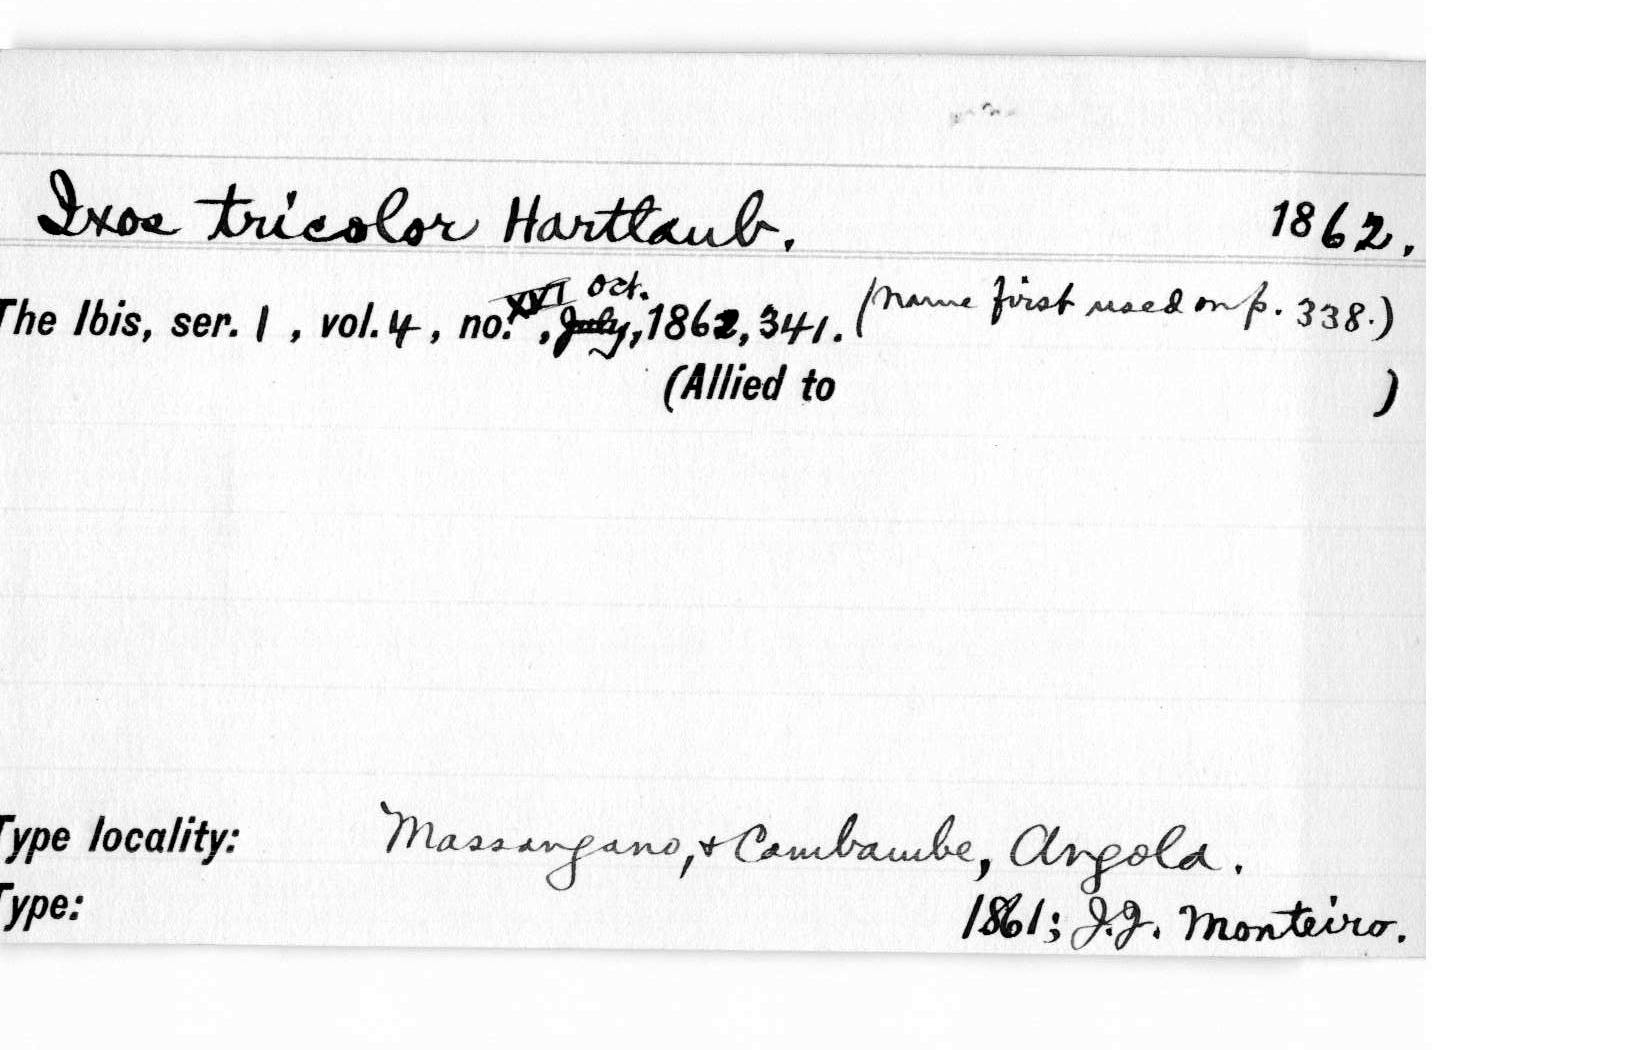 Ixos tricolor Hartlaub. 1862.
The Ibis, ser. 1, vol. 4, no. XVI, July, Oct. 1862, 341. (name first used on p. 338.)
(Allied to )
Type locality: Massangano, & Cambambe, Angola.
Type: 1861; J.J. Monteiro.